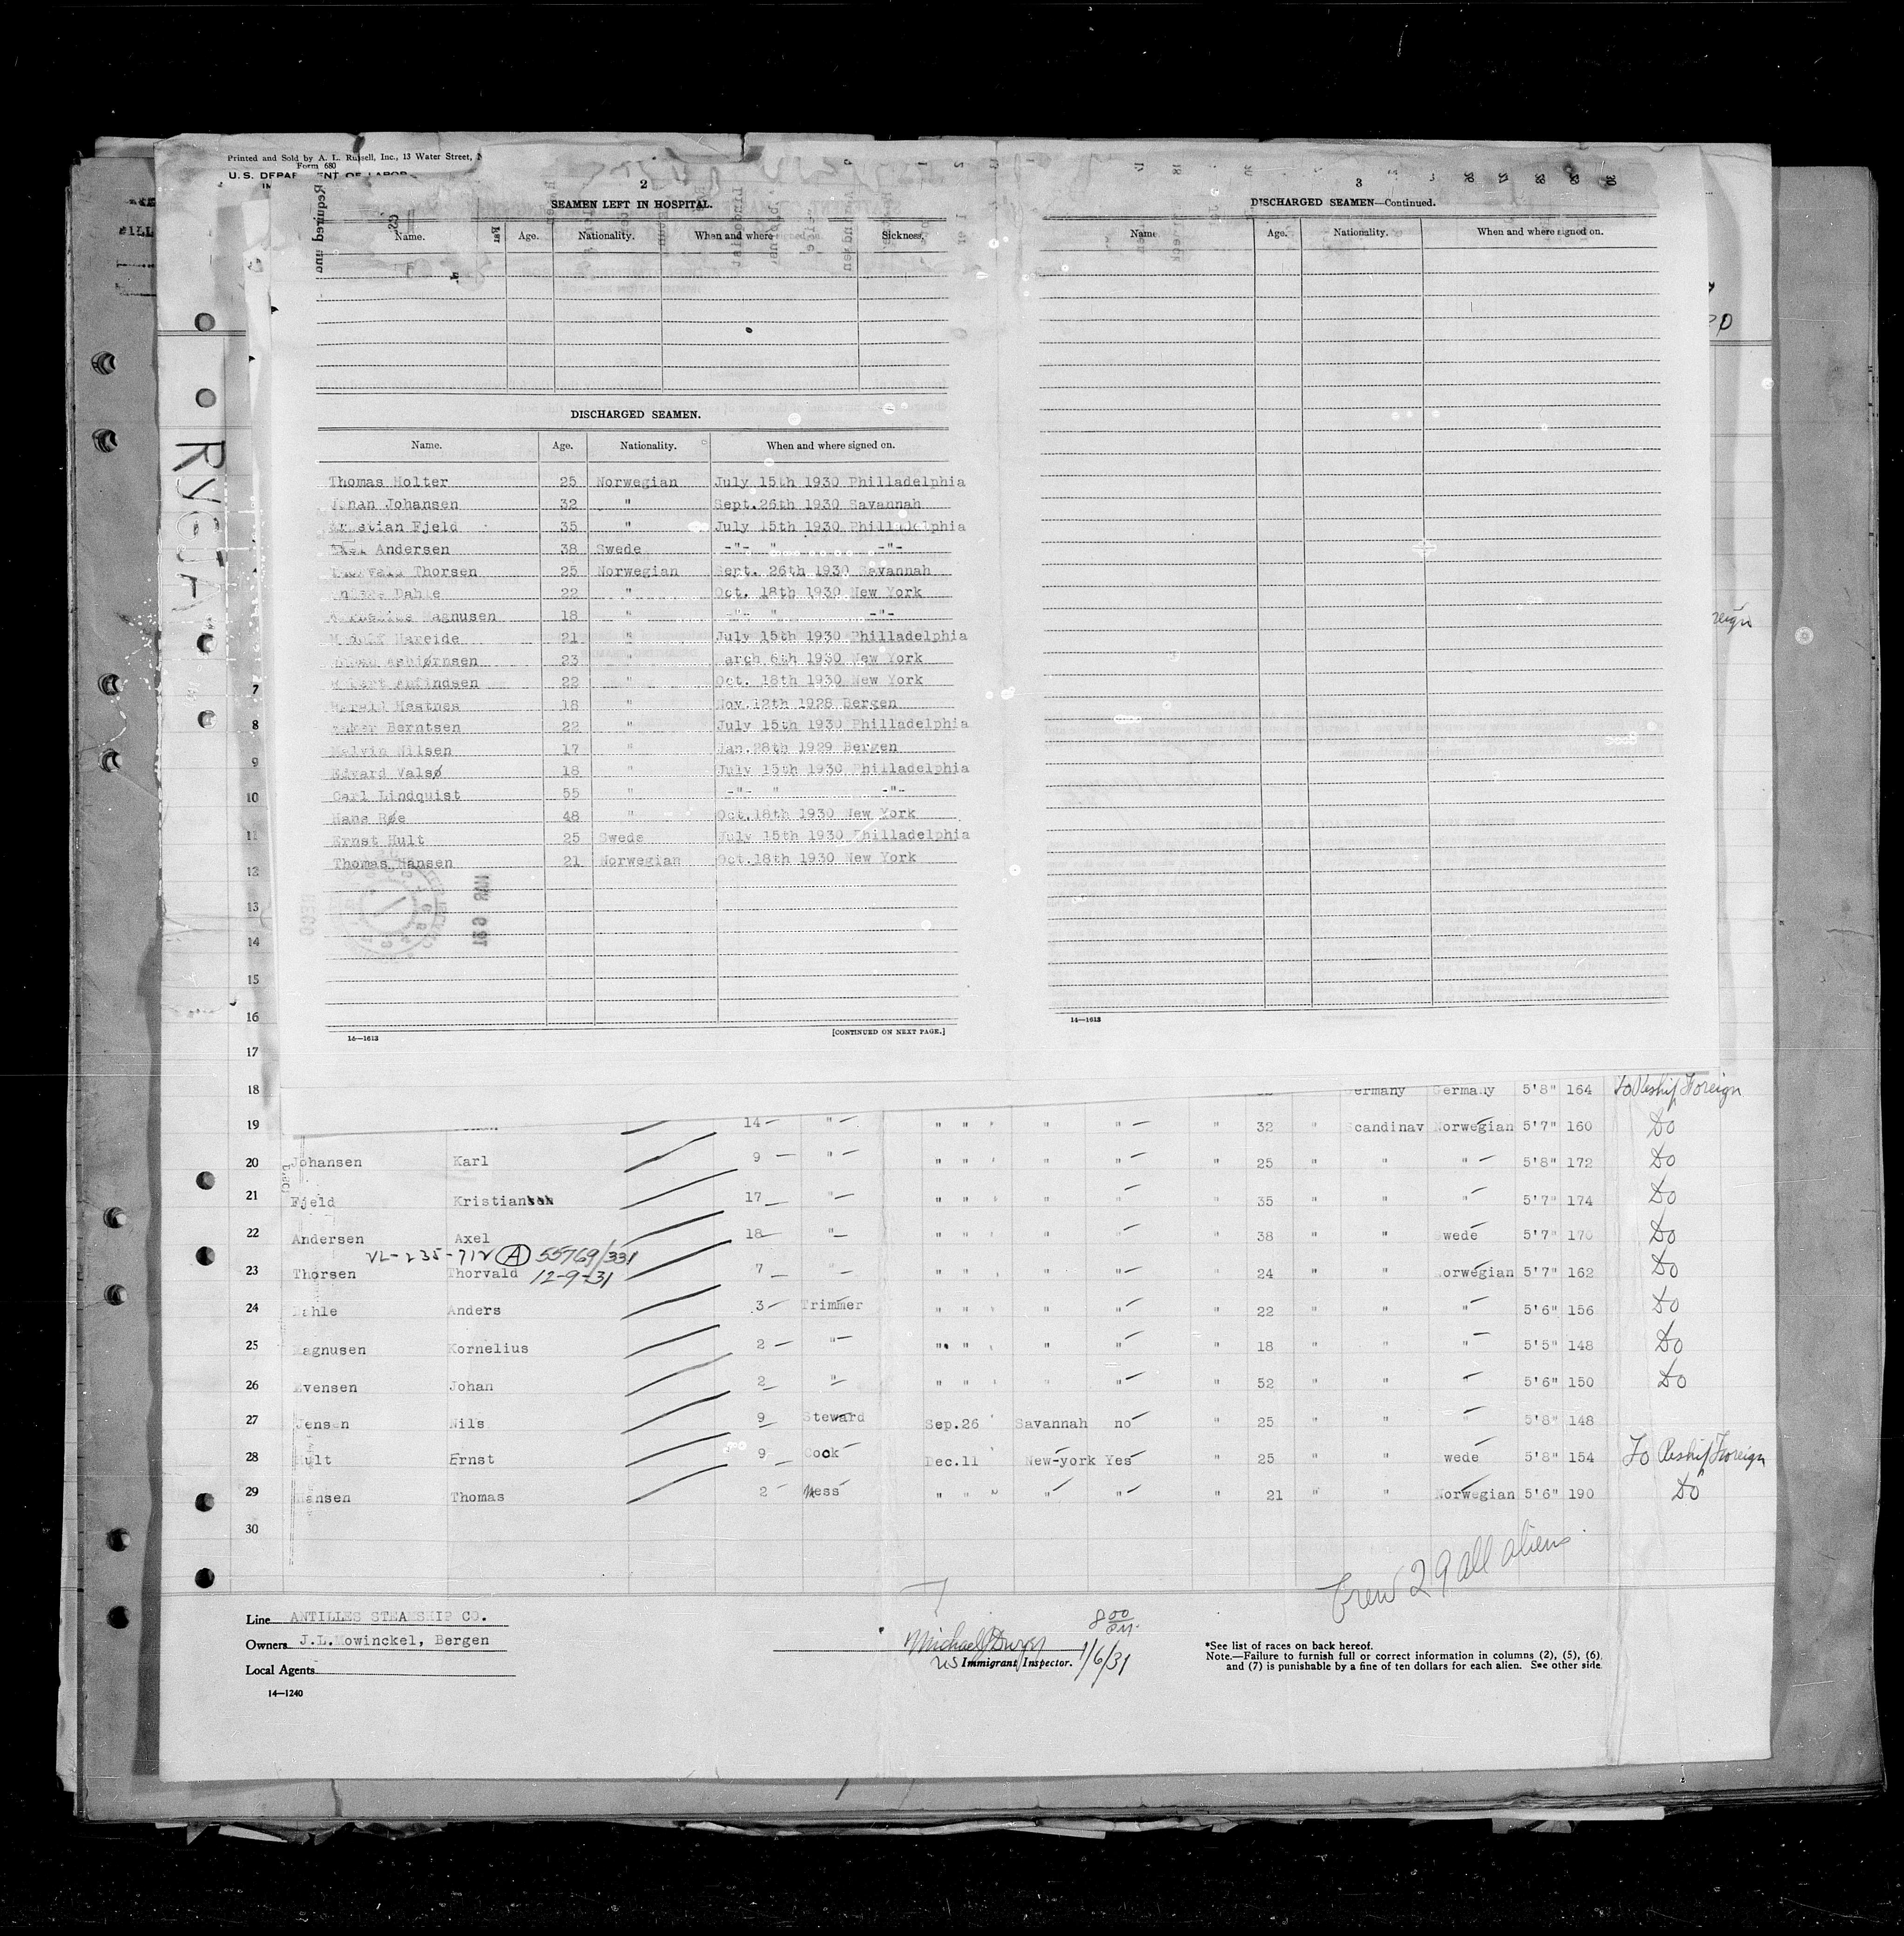 Printed and Sold by A. L. Russell, Inc., 13 Water Street, N
Form 680
U.S. DEPAR ENT OF LABOR
Required und
2
SEAMEN LEFT IN HOSPITAL.
Name. Age. Nationality. When and where Sickness.
DISCHARGED SEAMEN.
Name. Age. Nationality. When and where signed on.
Thomas Holter 25 Norwegian July 15th 1930 Philladelphia
Johan Johansen 32 " Sept.26th 1930 Savannah
Kristian Fjeld 35 " July 15th 1930 Philladelphia
Axel Andersen 38 Swede -"- " -"-
Thorvald Thorsen 25 Norwegian Sept. 26th 1930 Savannah
Dahle 22 " Oct. 18th 1930 New York
Kornelius Magnusen 18 " -"- " -"-
Hareide 21 " July 15th 1930 Philladelphia
Asbjørnsen 23 " March 6th 1930 New York
Amfindsen 22 " Oct. 18th 1930 New York
Harald Mestnes 18 " Nov.12th 1928 Bergen
Berntsen 22 " July 15th 1930 Philladelphia
Melvin Nilsen 17 " Jan.28th 1929 Bergen
Edvard Valsø 18 " July 15th 1930 Philladelphia
Carl Lindquist 55 " -"- " -"-
Hans Røe 48 " Oct.18th 1930 New York
Ernst Hult 25 Swede July 15th 1930 Philladelphia
Thomas Hansen 21 Norwegian Oct.18th 1930 New York
16—1613
[CONTINUED ON NEXT PAGE.]
3
DISCHARGED SEAMEN—Continued.
Name Age. Nationality. When and where signed on.
14—1613
RYGJA
7
8
9
10
11
12
13
14
15
16
17
18 ermany Germany 5'8" 164 To Reship Foreign
19 14 " " " " " " " 32 " Scandinav Norwegian 5'7" 160 Do
20 Johansen Karl 9 " " " " " " " 25 " " " 5'8" 172 Do
21 Fjeld Kristian 17 " " " " " " " 35 " " " 5'7" 174 Do
22 Andersen Axel 18 " " " " " " " 38 " " Swede 5'7" 170 Do
VL-235-712 (A) 55769/331
23 Thorsen Thorvald 12-9-31 7 " " " " " " " 24 " " Norwegian 5'7" 162 Do
24 Dahle Anders 3 Trimmer " " " " " " 22 " " " 5'6" 156 Do
25 Magnusen Kornelius 2 " " " " " " " 18 " " " 5'5" 148 Do
26 Evensen Johan 2 " " " " " " " 52 " " " 5'6" 150 Do
27 Jensen Nils 9 Steward Sep.26 ' Savannah no " 25 " " " 5'8" 148
28 Hult Ernst 9 Cook Dec.11 ' New-york Yes " 25 " " wede 5'8" 154 To Reship Foreign
29 Hansen Thomas 2 Mess " " " " " " 21 " " Norwegian 5'6" 190 Do
30
Crew 29 all aliens
Line ANTILLES STEAMSHIP CO.
Owners J.L.Mowinckel, Bergen
Local Agents
14—1240
8 00 PM.
US Immigrant Inspector. 1/6/31
*See list of races on back hereof.
Note.—Failure to furnish full or correct information in columns (2), (5), (6),
and (7) is punishable by a fine of ten dollars for each alien. See other side.